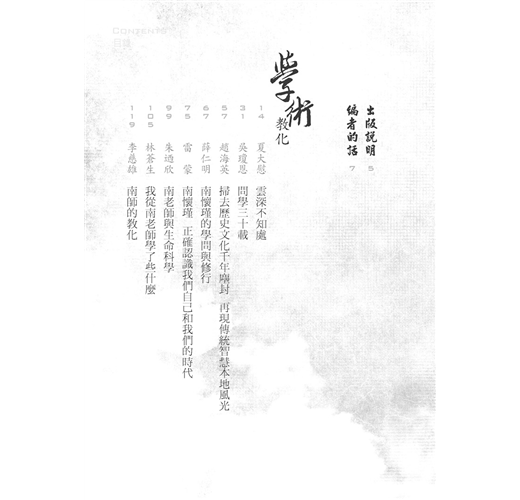 CONTENTS
目錄
出版說明 5
編者的話 7
學術
教化
14 夏大慰 雲深不知處
31 吳瓊恩 問學三十載
57 趙海英 掃去歷史文化千年塵封 再現傳統智慧本地風光
67 薛仁明 南懷瑾的學問與修行
75 雷蒙 南懷瑾 正確認識我們自己和我們的時代
99 朱迺欣 南老師與生命科學
105 林蒼生 我從南老師學了些什麼
119 李慈雄 南師的教化